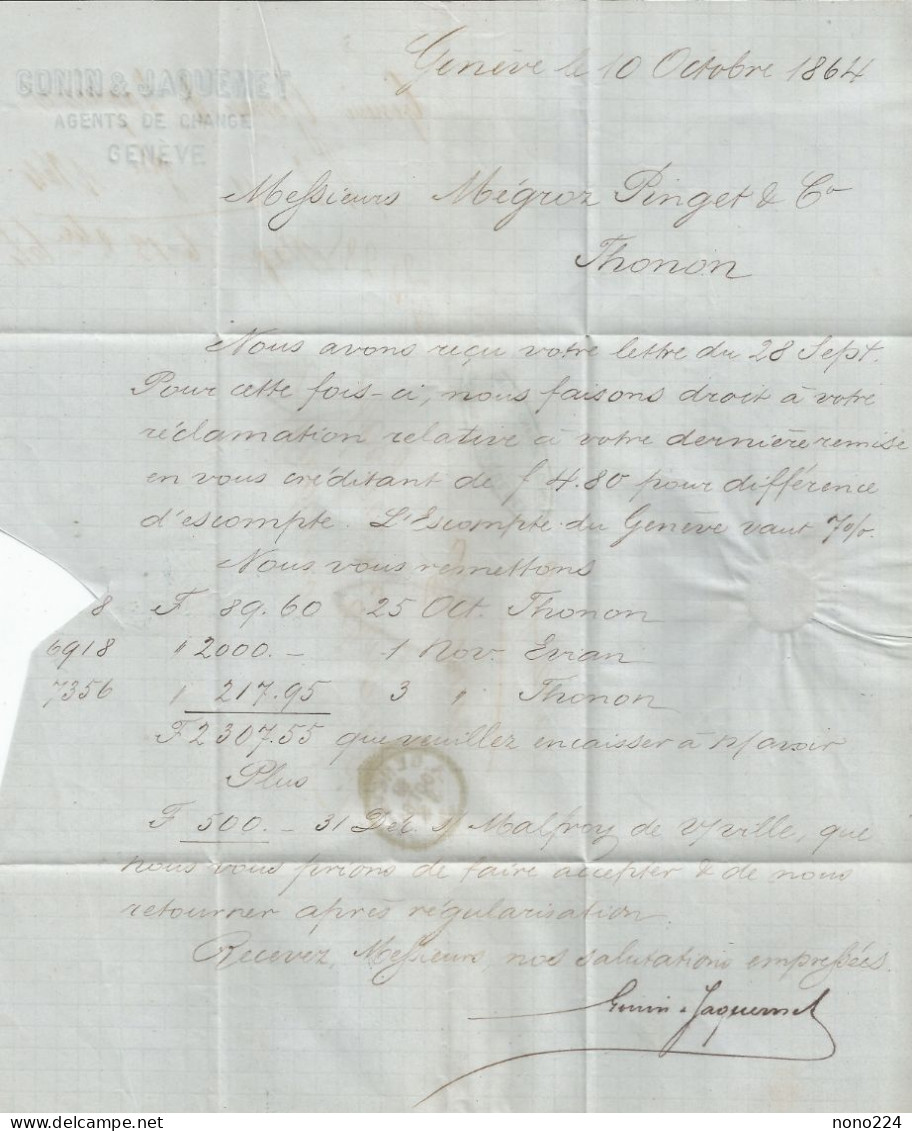 GONIN & JAQUEMET
AGENTS DE CHANGE
GENÈVE
Genève le 10 Octobre 1864
Messieurs Mégroz Pinget & Co
Thonon
Nous avons reçu votre lettre du 28 Sept.
Pour cette fois-ci, nous faisons droit à votre
réclamation relative à votre dernière remise
en vous créditant de f 4.80 pour différence
d'escompte. L'Escompte du Genève vaut 7 o/o.
Nous vous remettons
8 F 89.60 25 Oct. Thonon
6918 " 2000.- 1 Nov. Evian
7356 " 217.95 3 " Thonon
F 2307.55 que veuillez encaisser à n/avoir
Plus
F 500.- 31 Déc. s/ Malfroy de v/ville, que
nous vous prions de faire accepter & de nous
retourner après régularisation.
Recevez, Messieurs, nos salutations empressées.
Gonin & Jaquemet
nono224